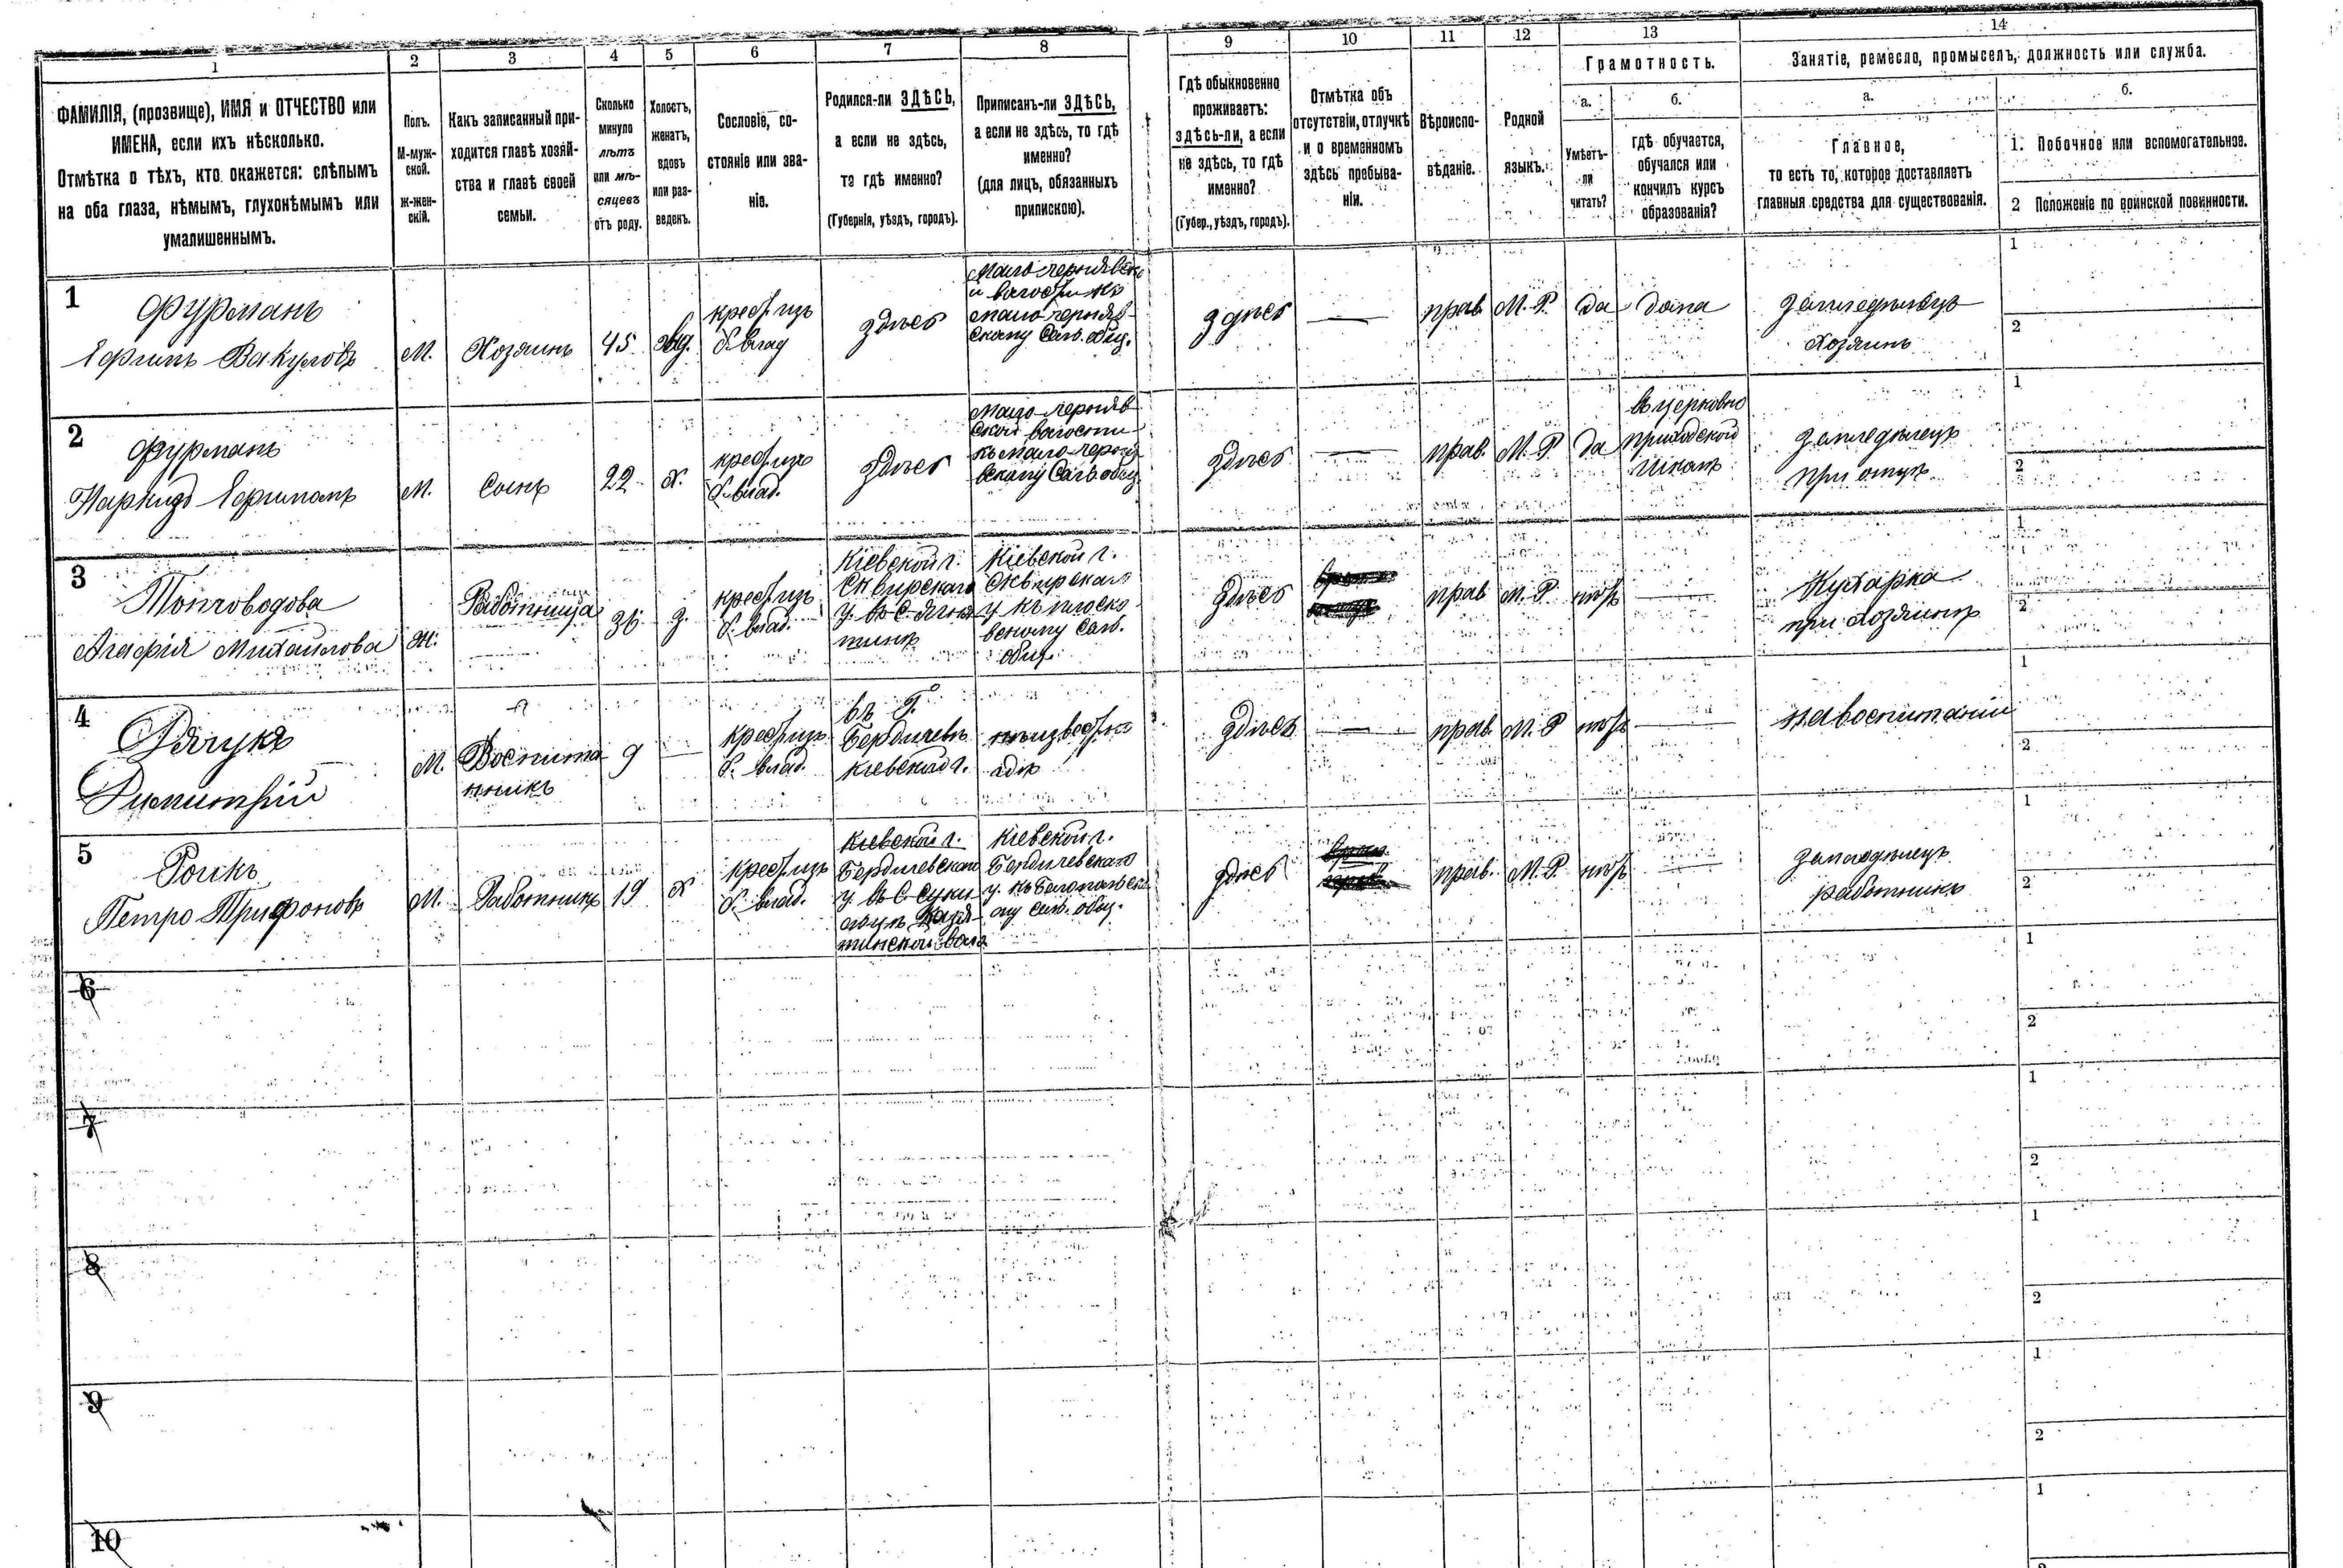 1
2
3
4
5
6
7
8
9
10
11
12
13
14
ФАМИЛІЯ, (прозвище), ИМЯ и ОТЧЕСТВО или
ИМЕНА, если ихъ нѣсколько.
Отмѣтка о тѣхъ, кто окажется: слѣпымъ
на оба глаза, нѣмымъ, глухонѣмымъ или
умалишеннымъ.
Полъ.
М-муж-
ской.
Ж-жен-
скій.
Какъ записанный при-
ходится главѣ хозяй-
ства и главѣ своей
семьи.
Сколько
минуло
лѣтъ
или мѣ-
сяцевъ
отъ роду.
Холостъ,
женатъ,
вдовъ
или раз-
веденъ.
Сословіе, со-
стояніе или зва-
ніе.
Родился-ли ЗДѢСЬ,
а если не здѣсь,
то гдѣ именно?
(Губернія, уѣздъ, городъ).
Приписанъ-ли ЗДѢСЬ,
а если не здѣсь, то гдѣ
именно?
(для лицъ, обязанныхъ
припискою).
Гдѣ обыкновенно
проживаетъ:
здѣсь-ли, а если
не здѣсь, то гдѣ
именно?
(Губер., уѣздъ, городъ).
Отмѣтка объ
отсутствіи, отлучкѣ
и о временномъ
здѣсь пребыва-
ніи.
Вѣроиспо-
вѣданіе.
Родной
языкъ.
Грамотность.
а.
Умѣетъ-
ли
читать?
б.
гдѣ обучается,
обучался или
кончилъ курсъ
образованія?
Занятіе, ремесло, промыселъ, должность или служба.
а.
Главное,
то есть то, которое доставляетъ
главныя средства для существованія.
б.
1. Побочное или вспомогательное.
2 Положеніе по воинской повинности.
1
Фурманъ
Ефимъ Вакуловъ
М.
Хозяинъ
45
вд.
крест. изъ
б. влад
здѣсь
Мало-Чернявск
й волости къ
Мало-Черняв-
скому Сель. общ.
здѣсь
—
прав.
М. Р.
да
дома
Земледѣлецъ
Хозяинъ
1
2
2
Фурманъ
Наркизъ Ефимовъ
М.
Сынъ
22
х.
крест. изъ
б. влад.
здѣсь
Мало-Черняв
ской волости
къ Мало-Черня
вскому Сель. общ.
здѣсь
—
прав.
М. Р.
да
въ церковно
приходской
школѣ
земледѣлецъ
при отцѣ
1
2
3
Агафія Михайлова
Ж.
Работница
36
з.
крест. изъ
б. влад.
Кіевской г.
Сквирскаго
Кіевской г.
Сквирскаго
у. къ плоско-
вскому Сель.
общ.
здѣсь
прав
М. Р.
нѣтъ
—
Кухарка
при хозяинѣ
1
2
4
Димитрій
М.
Воспита
нникъ
9
—
крест. изъ
б. влад.
въ г.
Бердичевѣ
Кіевской г.
неизвестно
гдѣ
здѣсь
—
прав.
М. Р
нѣтъ
—
на воспитаніи
1
2
5
Петро Трифоновъ
М.
Работникъ
19
х
крест. изъ
б. влад.
Кіевской г.
Бердичевскаго
Кіевской г.
Бердичевскаго
здѣсь
прав.
М. Р.
нѣтъ
—
земледѣлецъ
работникъ
1
2
6
1
2
7
1
2
8
1
2
9
1
2
10
1